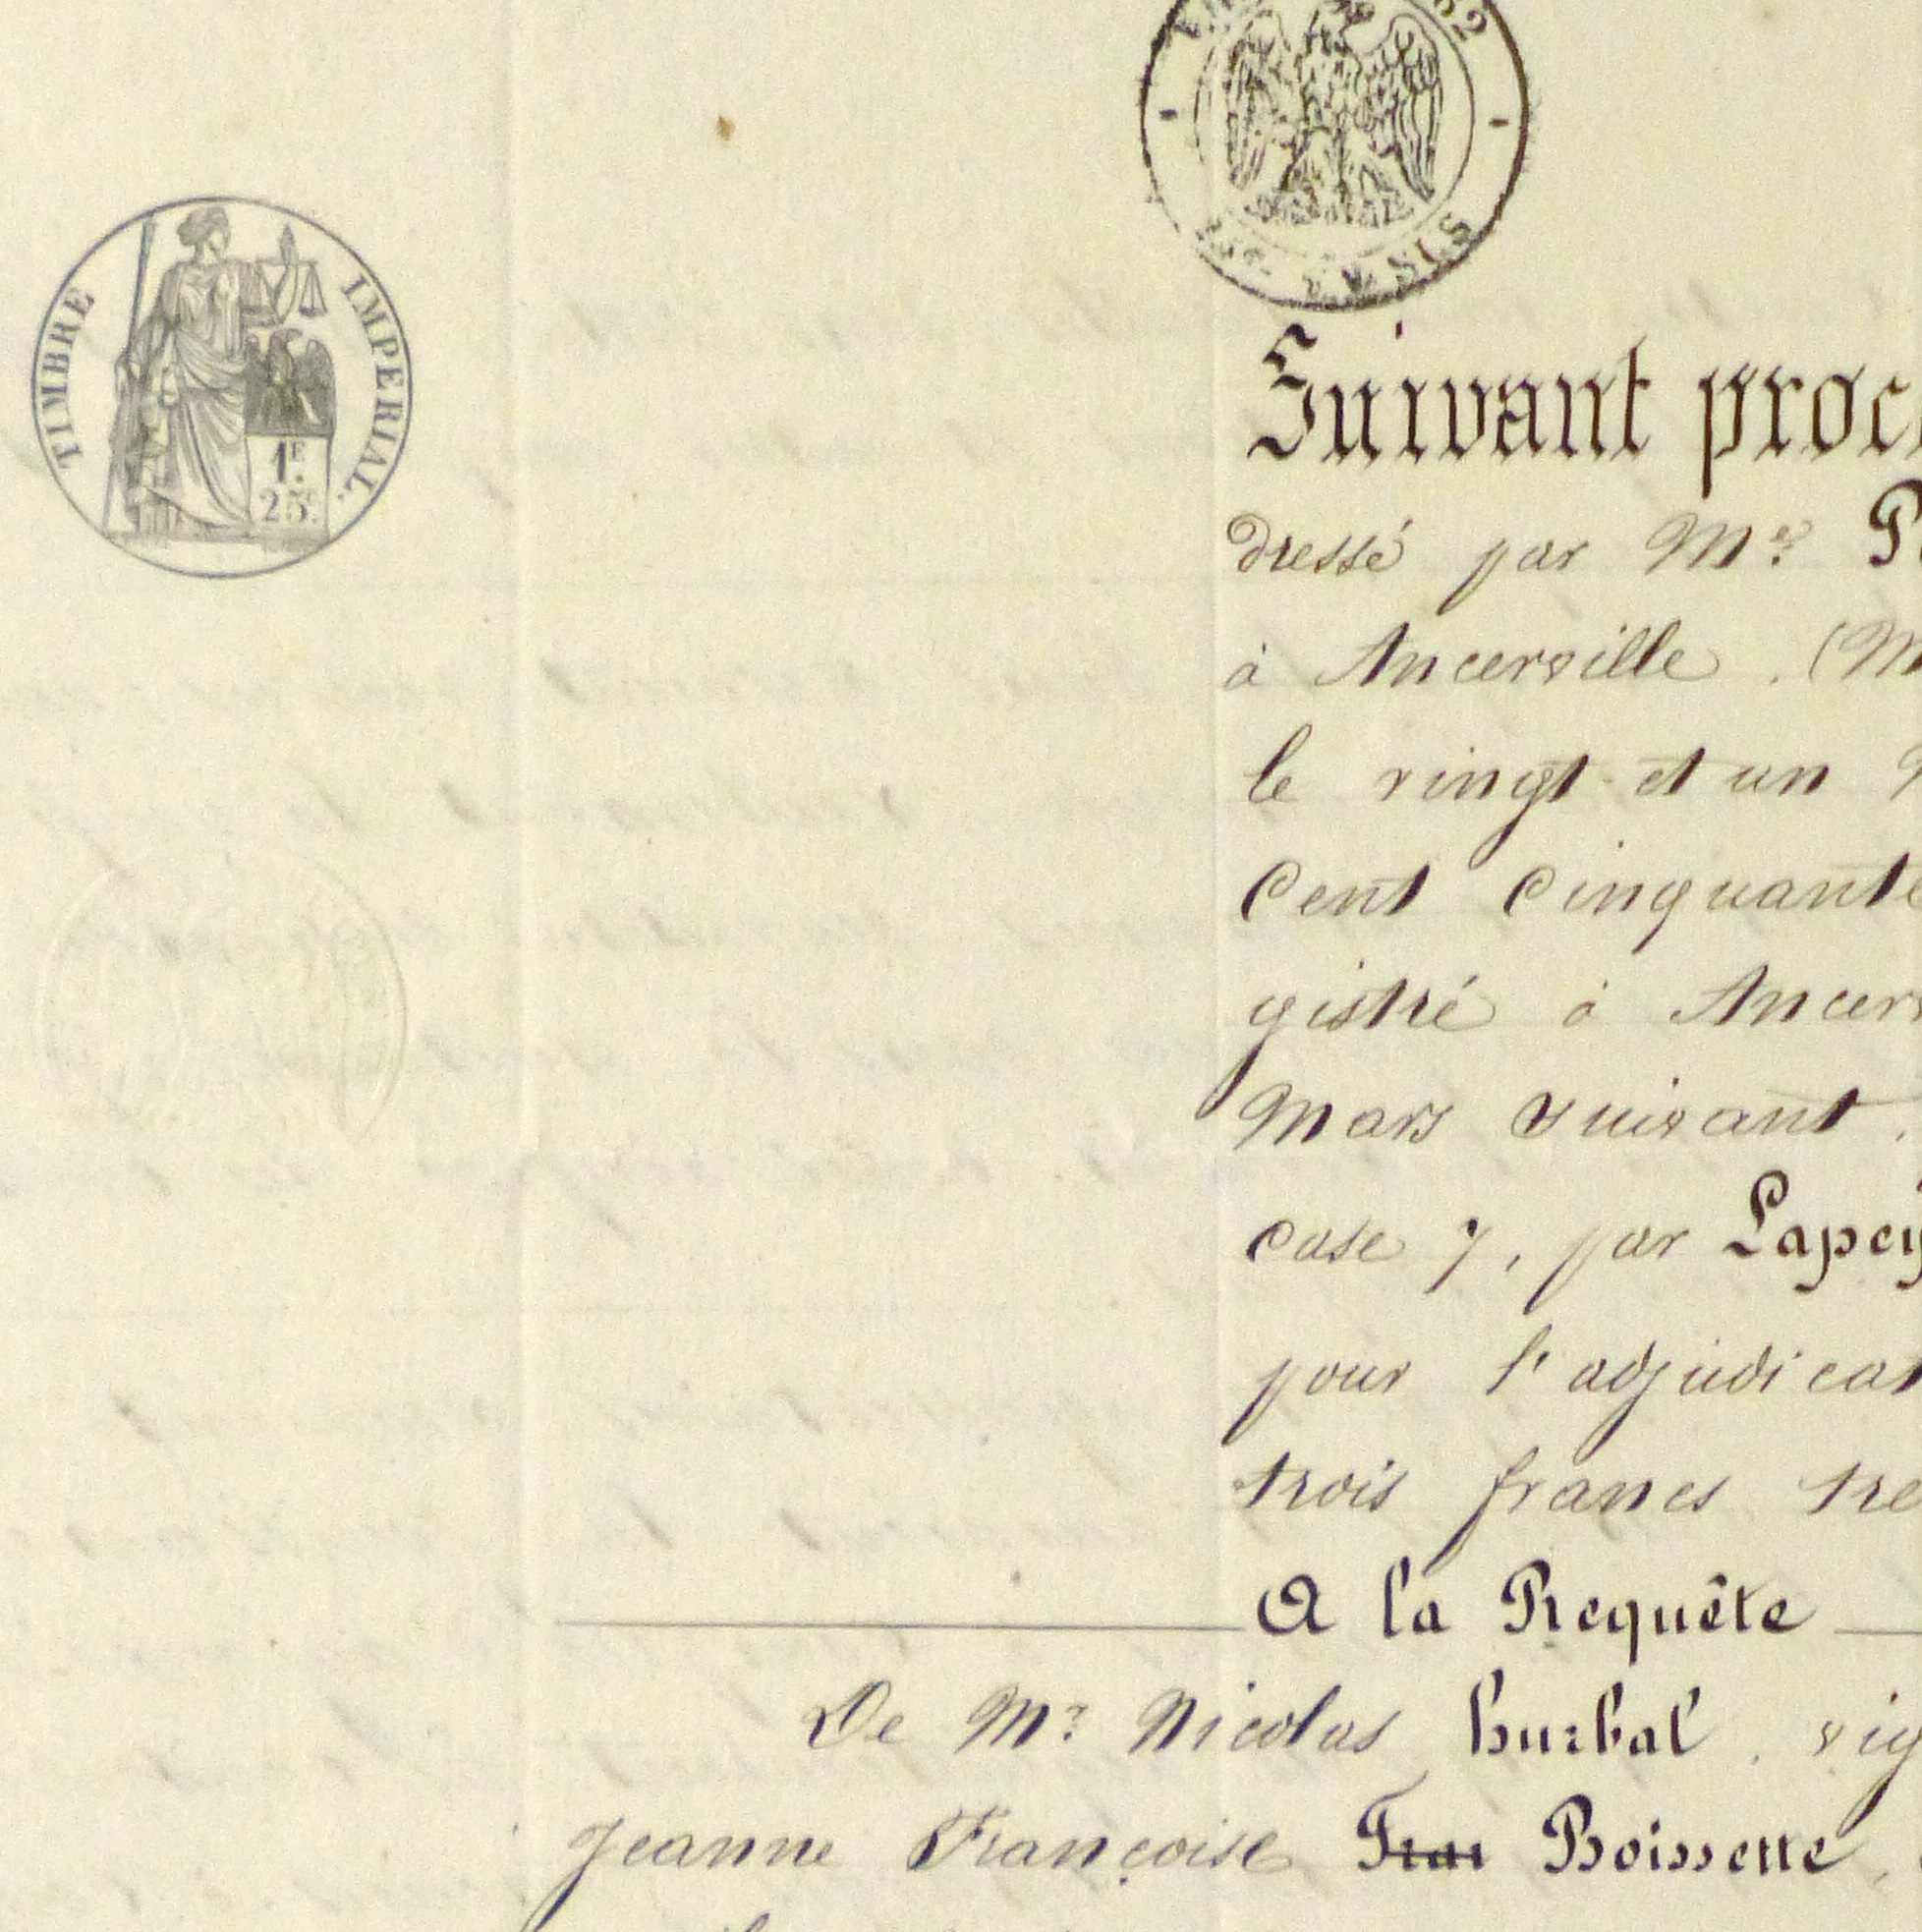 62
TIMBRE IMPERIAL.
1F.
25c.
Suivant
dressé par Me
à Ancerville. (M
le vingt-et un
Cent cinquante
gistré à Ancerv
Mars suivant.
case 7, par Lapey
pour l'adjudicat
trois francs tre
A la Requête
De Mr Nicolas hurbal, vig
Jeanne Françoise Boissette,